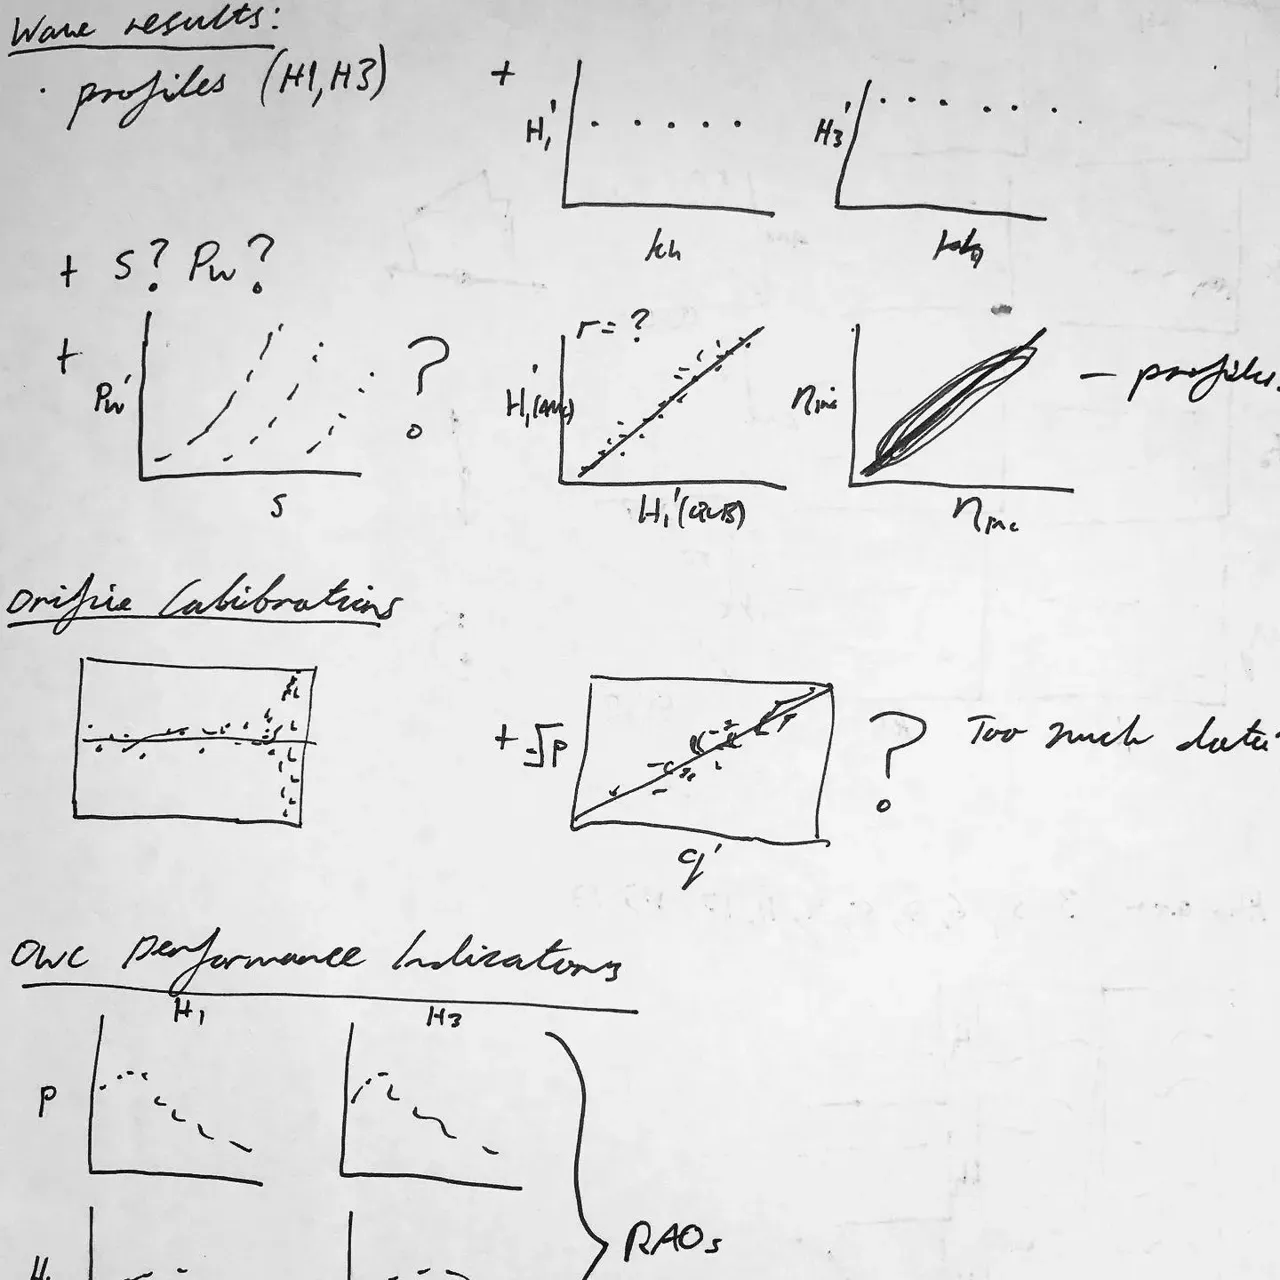 Wave results:
· profiles (H1, H3)
+ H₁' kh
H₃' kh
+ S? Pw?
+ Pw' S ?
r = ?
H₁' H₁' (QUB)
ηinc ηinc – profiles.
Orifice Calibrations
+ √p q' ? Too much data
OWC Performance Indicators
H₁ H3
P
RAOs
H